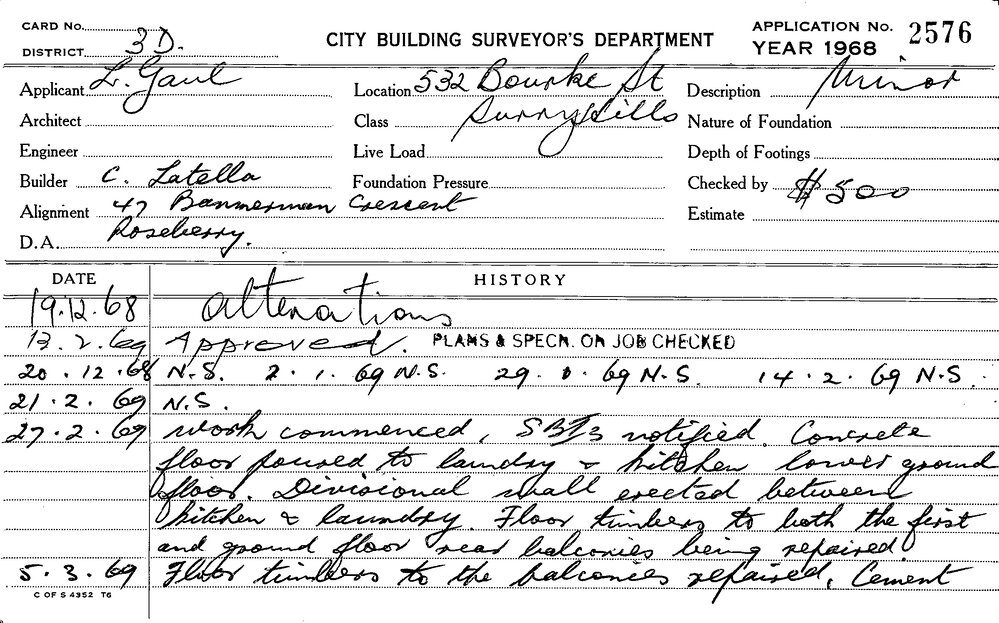 CARD No.
DISTRICT 3D.
CITY BUILDING SURVEYOR'S DEPARTMENT
APPLICATION No. 2576
YEAR 1968
Applicant L. Gaul
Location 532 Bourke St
Description Minor
Architect
Class Surry Hills
Nature of Foundation
Engineer
Live Load
Depth of Footings
Builder C. Latella
Foundation Pressure
Checked by $500
Alignment 47 Bannerman Crescent
Estimate
D.A. Roseberry.
DATE HISTORY
19.12.68 Alterations
13.2.69 Approved. PLANS & SPECN. ON JOB CHECKED
20.12.68 N.S. 2.1.69 N.S. 29. .69 N.S. 14.2.69 N.S.
21.2.69 N.S.
27.2.69 work commenced, notified. Concrete
floor poured to laundry & kitchen lower ground
floor. Divisional wall erected between
kitchen & laundry. Floor timbers to both the first
and ground floor rear balconies being repaired
5.3.69 Floor timbers to the balconies repaired, Cement
C OF S 4352 T6